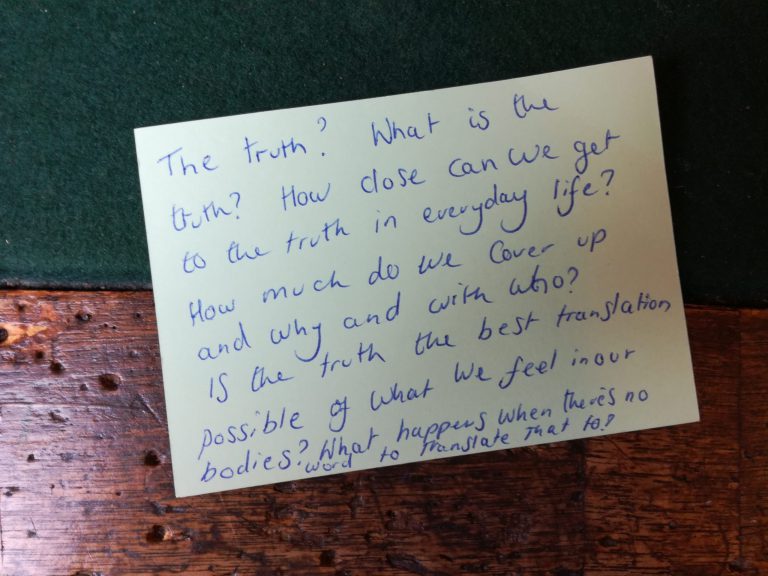 The truth? What is the
truth? How close can we get
to the truth in everyday life?
How much do we cover up
and why and with who?
Is the truth the best translation
possible of what we feel in our
bodies? What happens when there's no
word to translate that to?